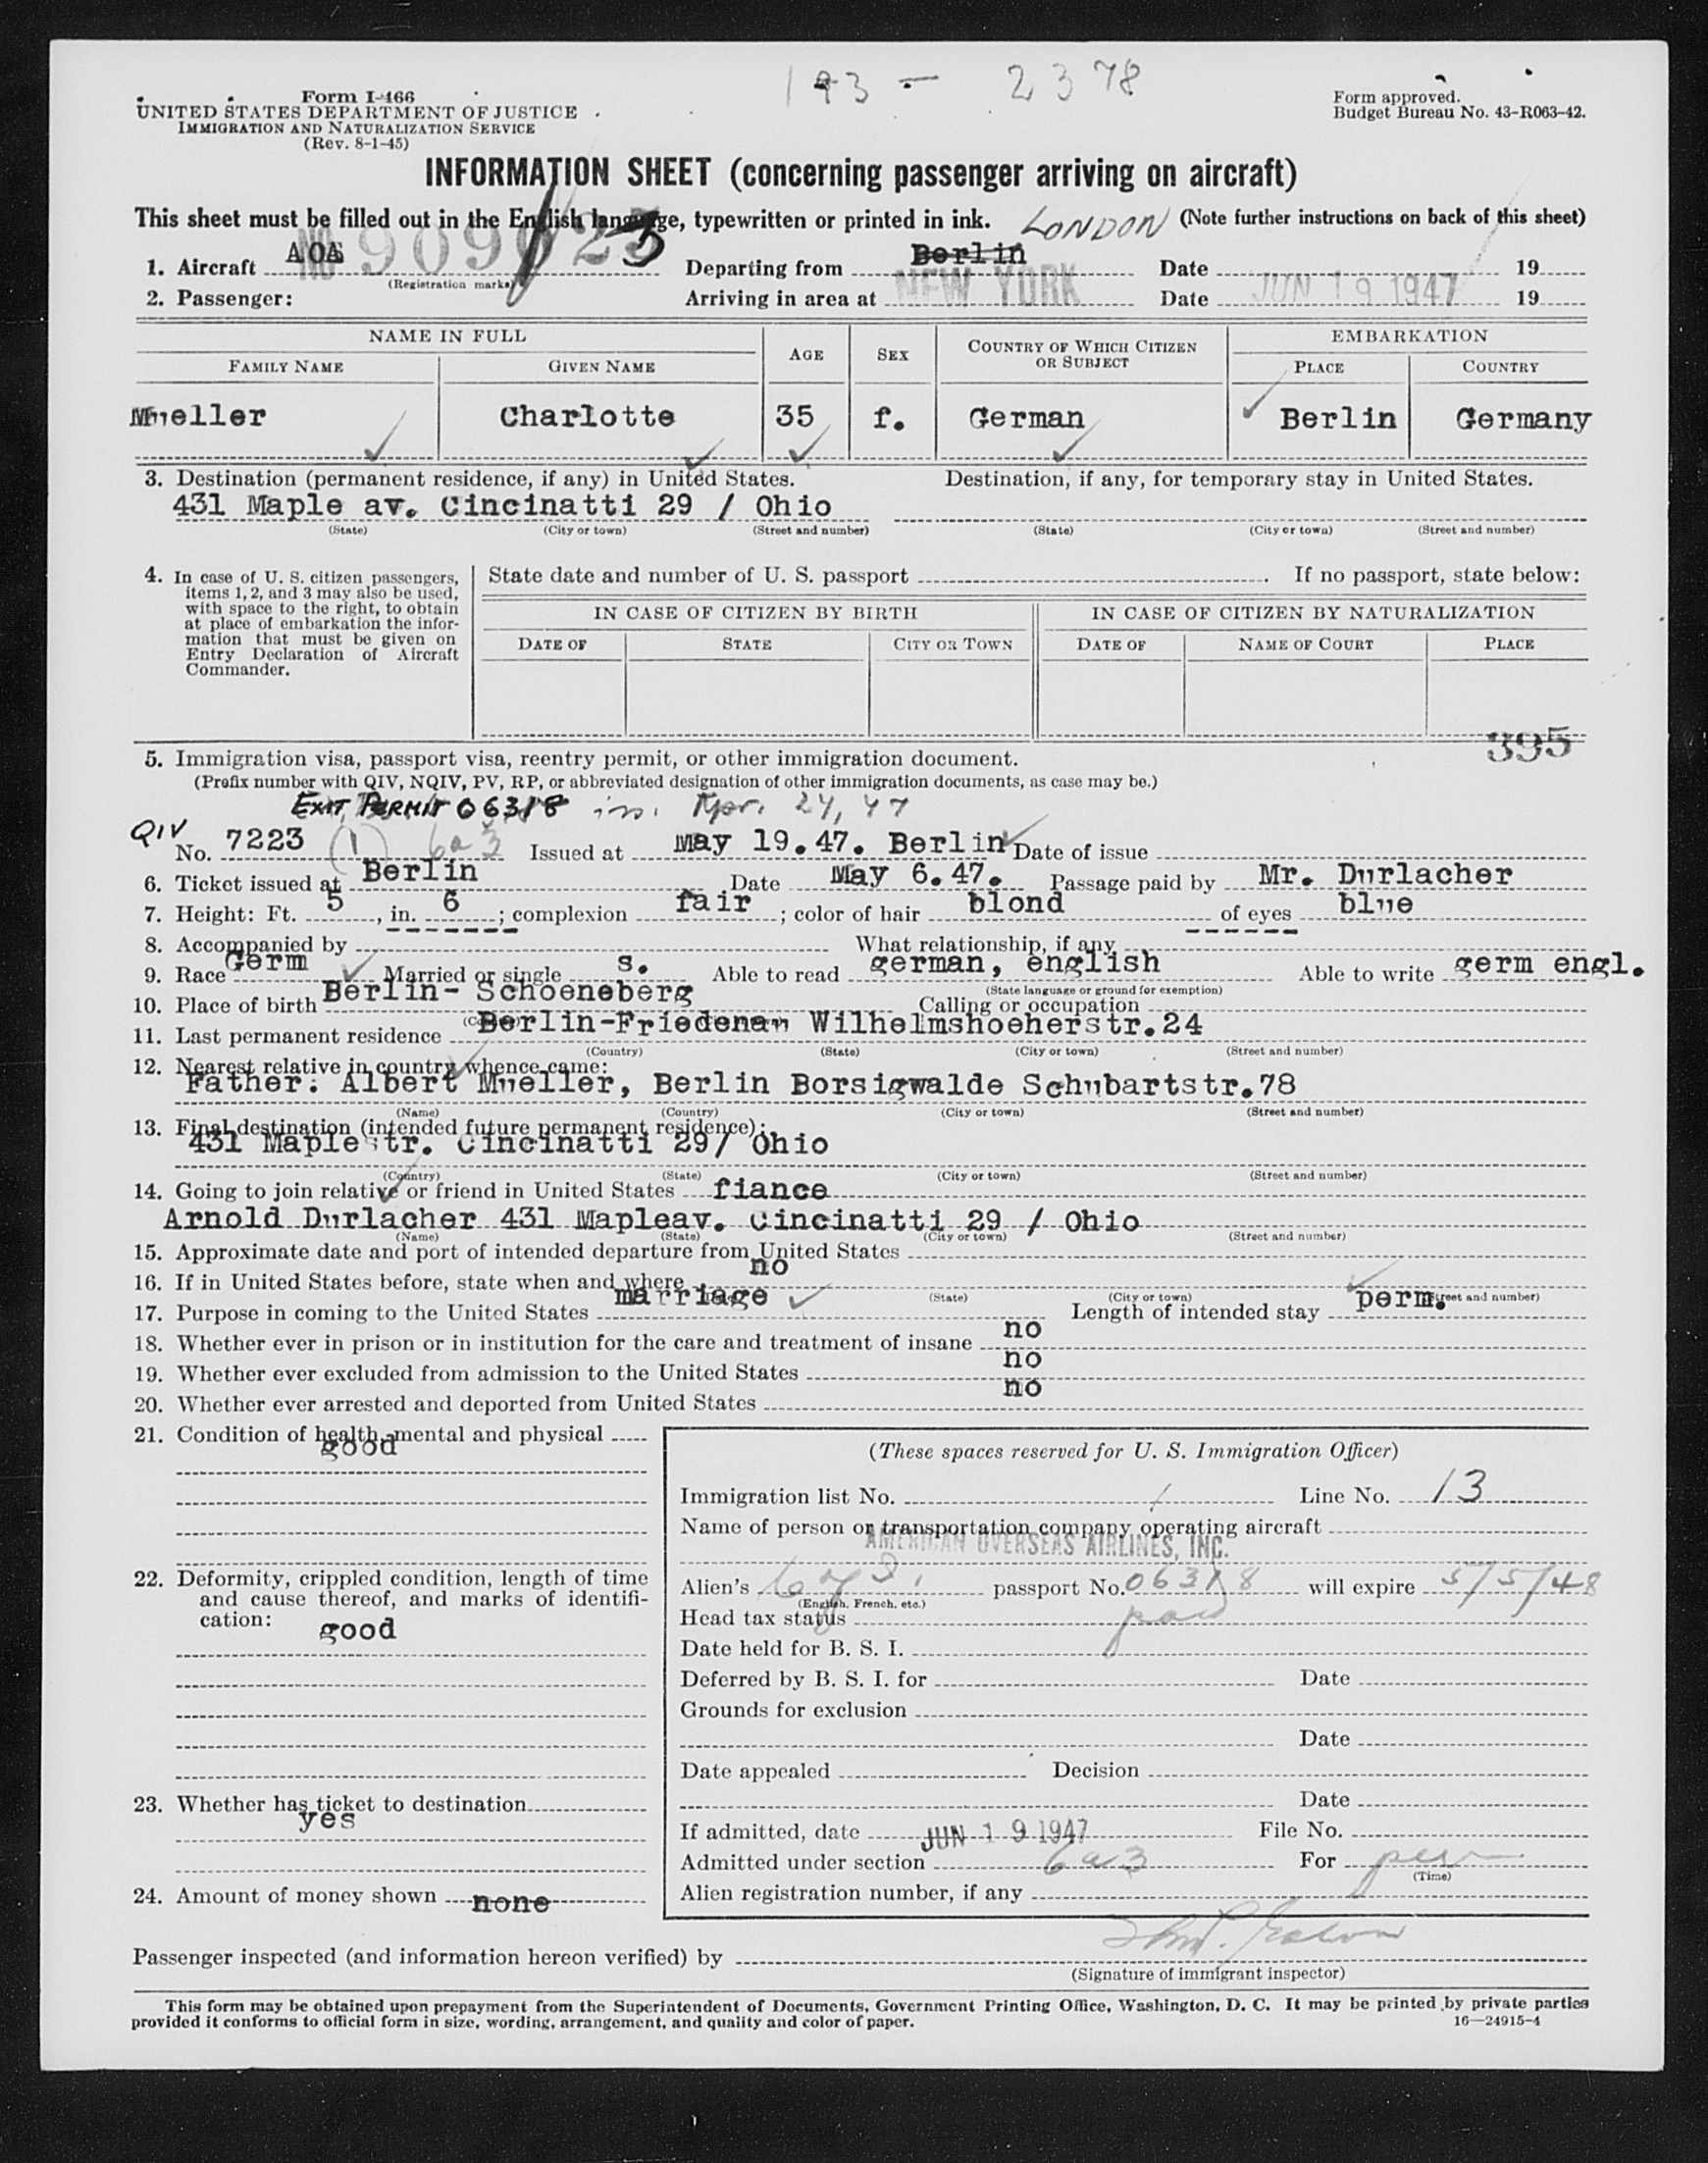 193 - 2378
Form I-466
UNITED STATES DEPARTMENT OF JUSTICE
IMMIGRATION AND NATURALIZATION SERVICE
(Rev. 8-1-45)
Form approved.
Budget Bureau No. 43-R063-42.
INFORMATION SHEET (concerning passenger arriving on aircraft)
This sheet must be filled out in the English language, typewritten or printed in ink. LONDON (Note further instructions on back of this sheet)
1. Aircraft AOA NO 909 (Registration marks) Departing from Berlin Date 19
2. Passenger: Arriving in area at NEW YORK Date JUN 19 1947 19
NAME IN FULL AGE SEX COUNTRY OF WHICH CITIZEN OR SUBJECT EMBARKATION
FAMILY NAME GIVEN NAME PLACE COUNTRY
Mueller Charlotte 35 f. German Berlin Germany
3. Destination (permanent residence, if any) in United States. Destination, if any, for temporary stay in United States.
431 Maple av. Cincinatti 29 / Ohio
(State) (City or town) (Street and number) (State) (City or town) (Street and number)
4. In case of U. S. citizen passengers, items 1, 2, and 3 may also be used, with space to the right, to obtain at place of embarkation the information that must be given on Entry Declaration of Aircraft Commander.
State date and number of U. S. passport . If no passport, state below:
IN CASE OF CITIZEN BY BIRTH IN CASE OF CITIZEN BY NATURALIZATION
DATE OF STATE CITY OR TOWN DATE OF NAME OF COURT PLACE
395
5. Immigration visa, passport visa, reentry permit, or other immigration document.
(Prefix number with QIV, NQIV, PV, RP, or abbreviated designation of other immigration documents, as case may be.)
EXIT PERMIT 06318 iss. Apr. 24, 47
QIV No. 7223 (1) 6a3 Issued at May 19.47. Berlin Date of issue
6. Ticket issued at Berlin Date May 6.47. Passage paid by Mr. Durlacher
7. Height: Ft. 5, in. 6; complexion fair; color of hair blond of eyes blue
8. Accompanied by What relationship, if any
9. Race Germ Married or single s. Able to read german, english Able to write germ engl.
(State language or ground for exemption)
10. Place of birth Berlin- Schoeneberg Calling or occupation
11. Last permanent residence Berlin-Friedenau Wilhelmshoeherstr.24
(Country) (State) (City or town) (Street and number)
12. Nearest relative in country whence came:
Father: Albert Mueller, Berlin Borsigwalde Schubartstr.78
(Name) (Country) (City or town) (Street and number)
13. Final destination (intended future permanent residence):
431 Maple str. Cincinatti 29/ Ohio
(Country) (State) (City or town) (Street and number)
14. Going to join relative or friend in United States fiance
Arnold Durlacher 431 Mapleav. Cincinatti 29 / Ohio
(Name) (State) (City or town) (Street and number)
15. Approximate date and port of intended departure from United States
16. If in United States before, state when and where no
(State) (City or town) (Street and number)
17. Purpose in coming to the United States marriage Length of intended stay perm.
18. Whether ever in prison or in institution for the care and treatment of insane no
19. Whether ever excluded from admission to the United States no
20. Whether ever arrested and deported from United States no
21. Condition of health, mental and physical
good
(These spaces reserved for U. S. Immigration Officer)
Immigration list No. 1 Line No. 13
Name of person or transportation company operating aircraft
AMERICAN OVERSEAS AIRLINES, INC.
22. Deformity, crippled condition, length of time and cause thereof, and marks of identification:
good
Alien's passport No. 06318 will expire 5/5/48
(English, French, etc.)
Head tax status paid
Date held for B. S. I.
Deferred by B. S. I. for Date
Grounds for exclusion
Date
Date appealed Decision
23. Whether has ticket to destination
yes
Date
If admitted, date JUN 19 1947 File No.
Admitted under section 6a3 For per
(Time)
24. Amount of money shown none
Alien registration number, if any
Passenger inspected (and information hereon verified) by
(Signature of immigrant inspector)
This form may be obtained upon prepayment from the Superintendent of Documents, Government Printing Office, Washington, D. C. It may be printed by private parties
provided it conforms to official form in size, wording, arrangement, and quality and color of paper. 16—24915-4